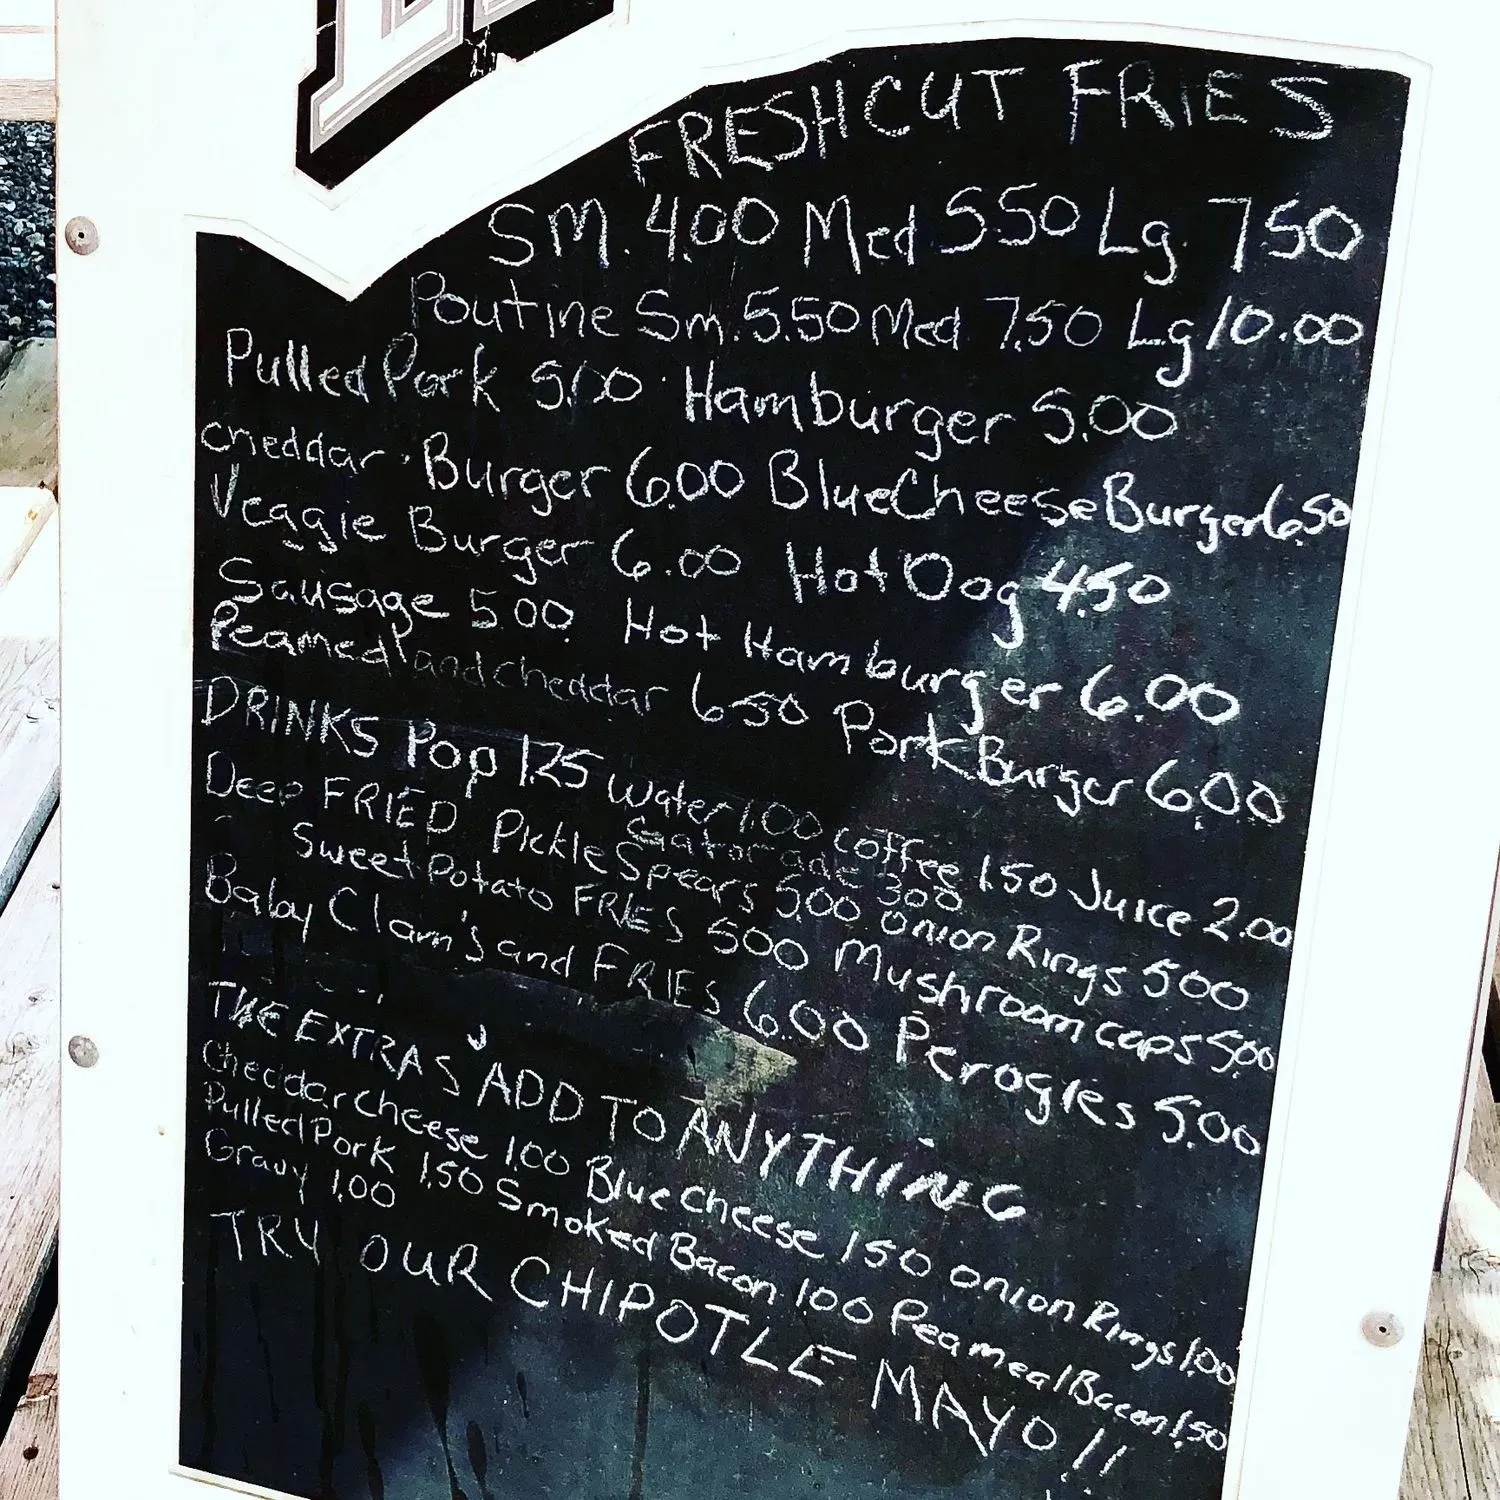 FRESHCUT FRIES
Sm. 4.00 Med 5.50 Lg. 7.50
Poutine Sm. 5.50 Med 7.50 Lg 10.00
Pulled Pork 5.00 Hamburger 5.00
cheddar Burger 6.00 Blue Cheese Burger 6.50
Veggie Burger 6.00 Hot Dog 4.50
Sausage 5.00 Hot Hamburger 6.00
Peamed and cheddar 6.50 Pork Burger 6.00
DRINKS Pop 1.25 Water 1.00 coffee 1.50 Juice 2.00
Gatorade 300
Deep FRIED Pickle Spears 5.00 Onion Rings 500
Sweet Potato FRIES 500 Mushroom caps 5.00
Baby Clam's and FRIES 6.00 Perogies 5.00
THE EXTRAS ADD TO ANYTHING
Cheddar Cheese 1.00 Blue Cheese 150 onion Rings 1.00
Pulled Pork 1.50 Smoked Bacon 1.00 Peameal Bacon 1.50
Gravy 1.00
TRY OUR CHIPOTLE MAYO!!